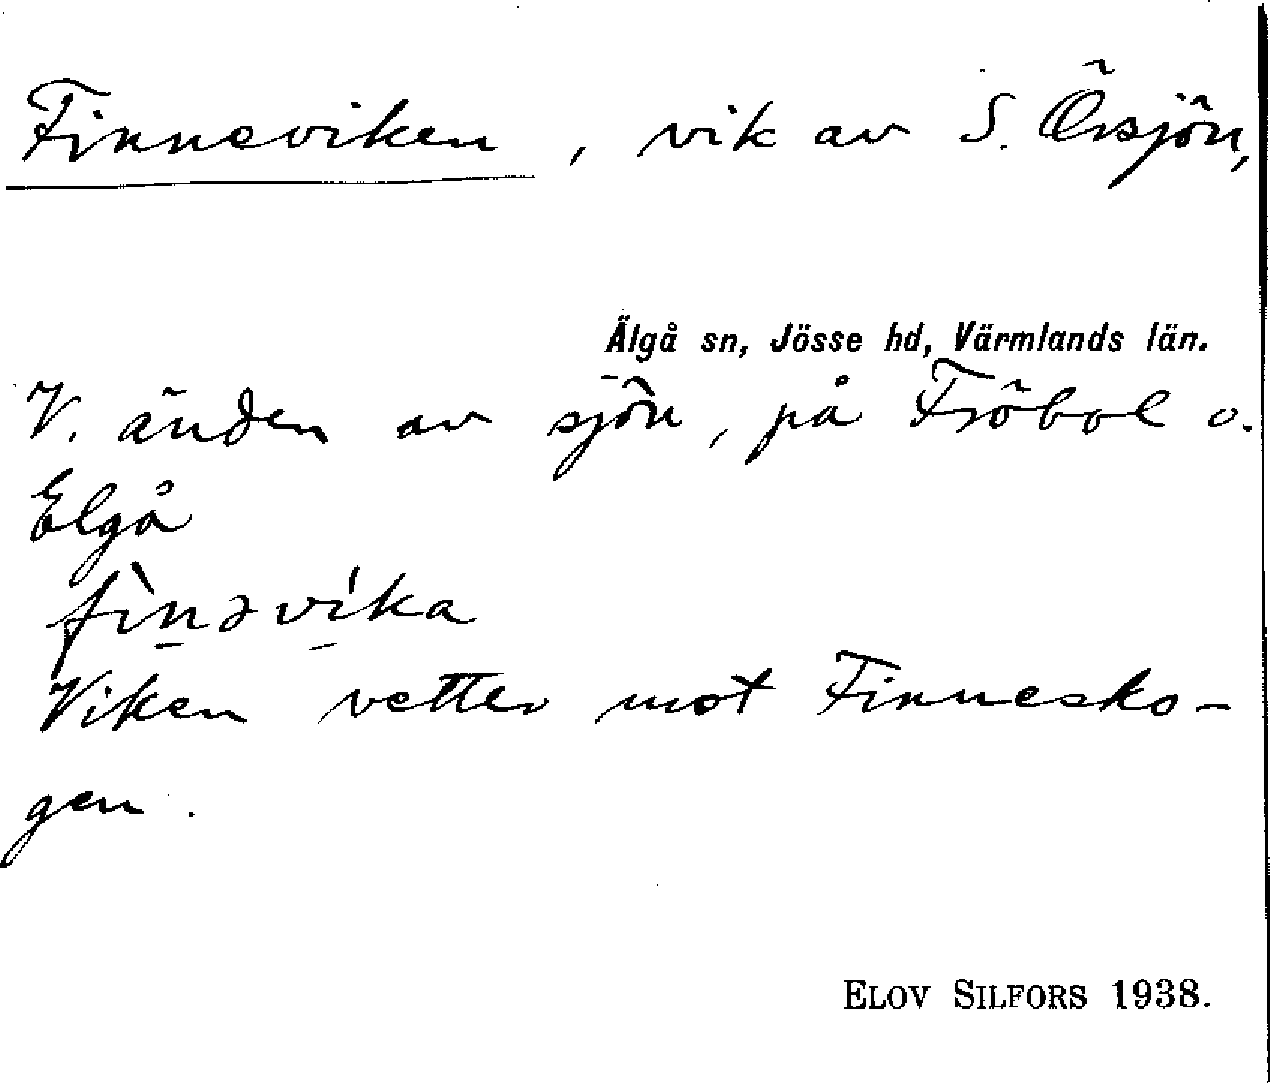 Finneviken, vik av S. Örsjön,
Älgå sn, Jösse hd, Värmlands län.
V. änden av sjön, på Fröbol o.
Elgå
fìn̠əví̠ka
Viken vetter mot Finnesko-
gen.
ELOV SILFORS 1938.